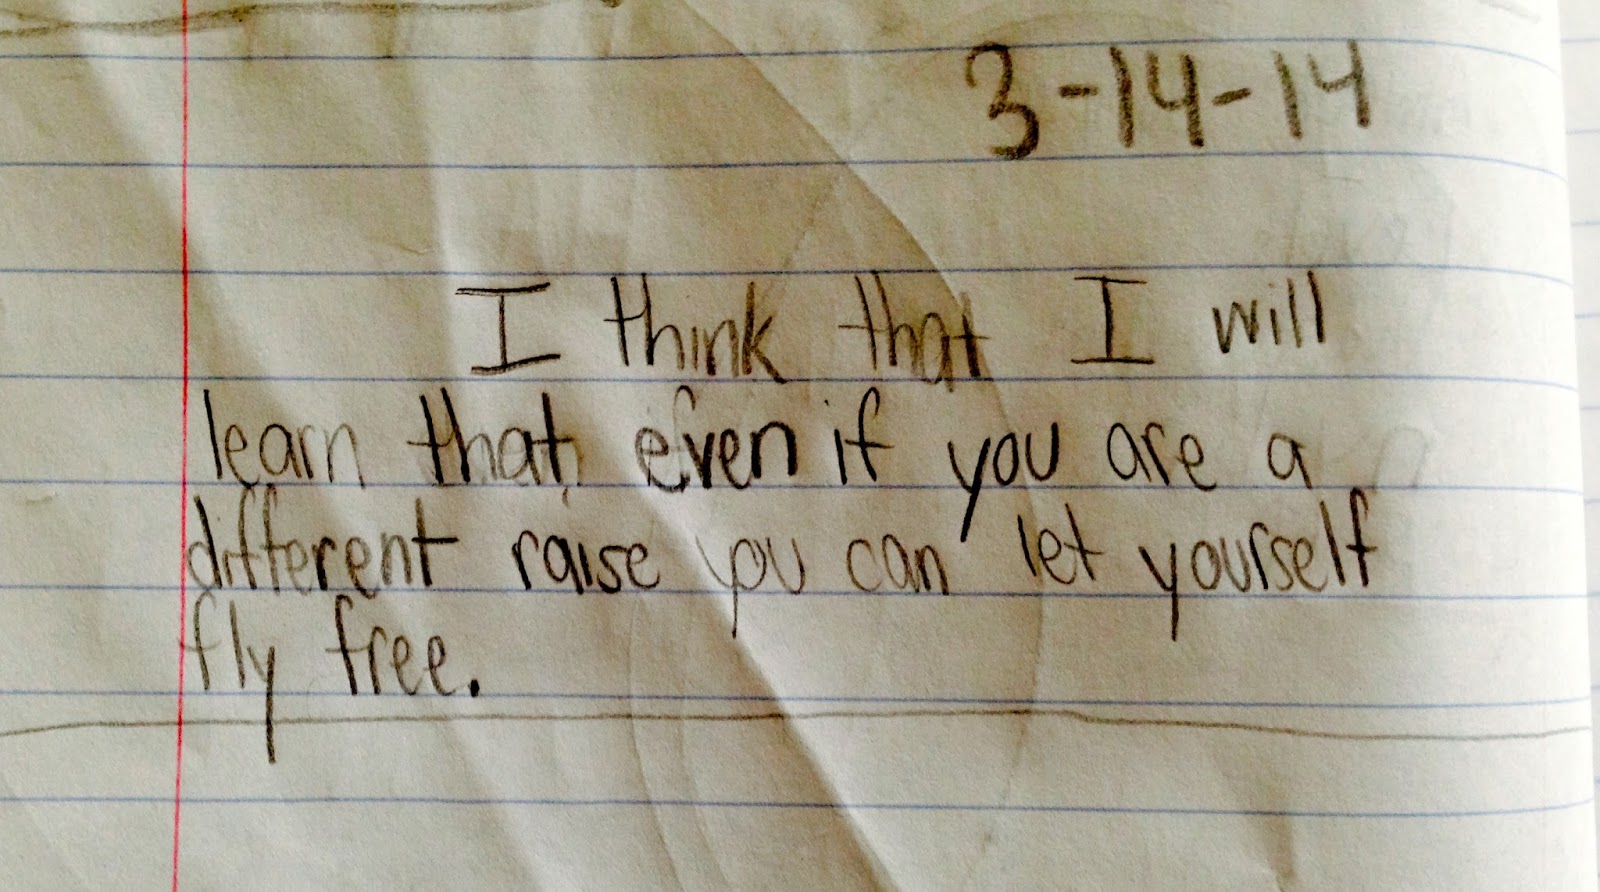 3-14-14
I think that I will
learn that even if you are a
different raise you can let yourself
fly free.